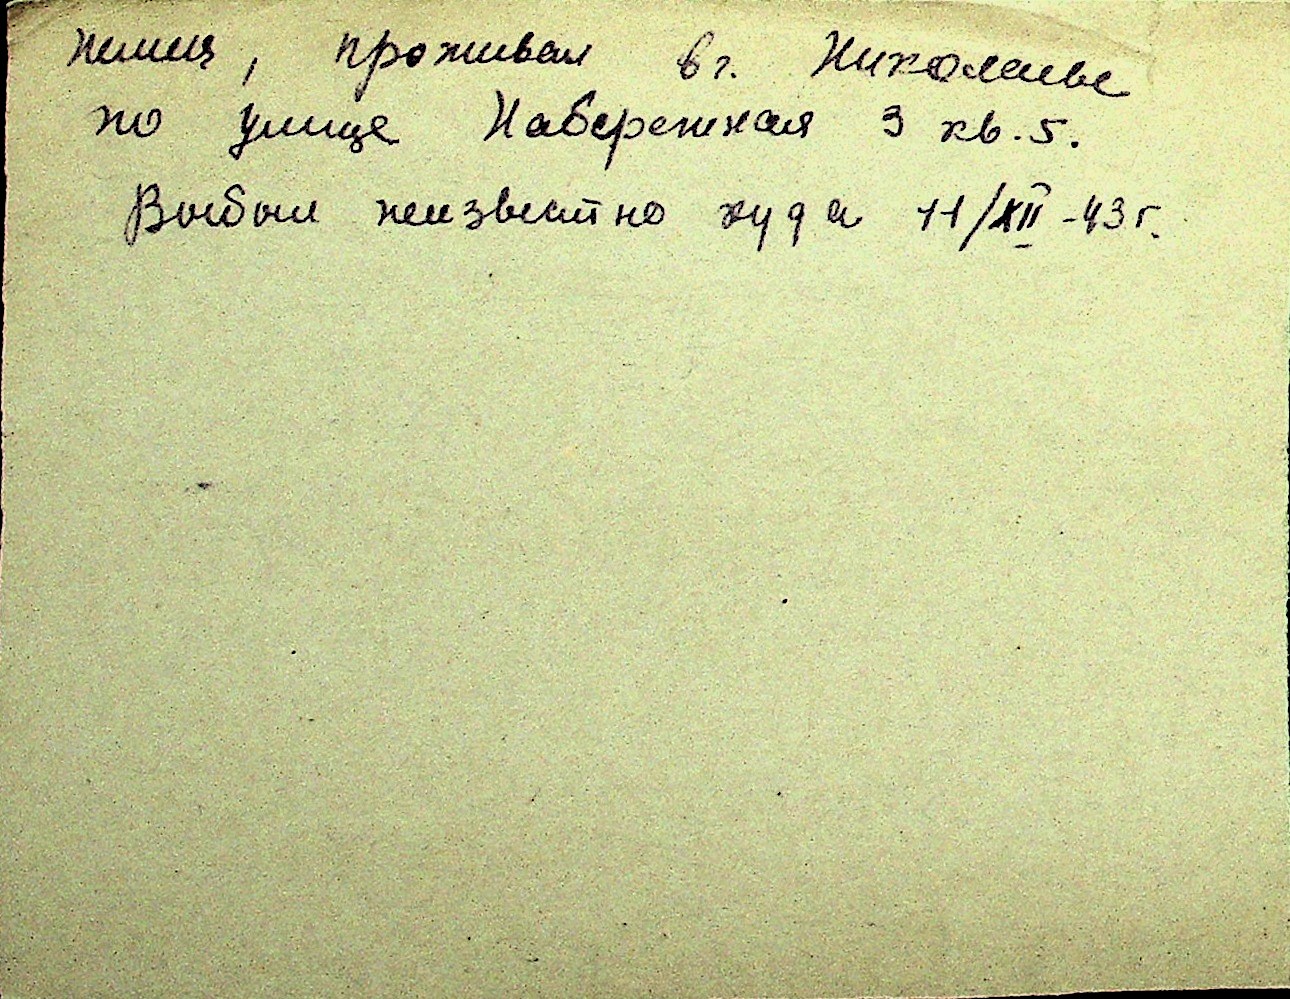 немец, проживал в г. Николаеве
по улице Набережная 3 кв. 5.
Выбыл неизвестно куда 11/XII-43 г.